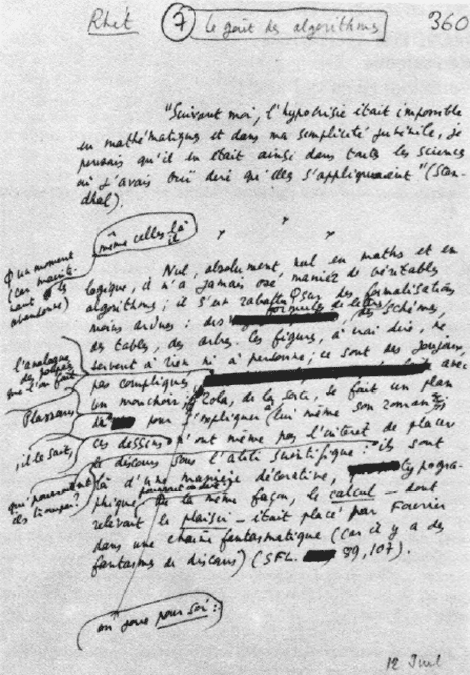 Rhét 7 Le goût des algorithmes 360
"Suivant moi, l'hypocrisie était impossible
en mathématiques et dans ma simplicité juvénile, je
pensais qu'il en était ainsi dans toutes les sciences
où j'avais ouï dire qu'elles s'appliquaient" (Sten-
dhal).
même celles là
il
un moment
(car mainte-
nant il les
abandonne)
Nul, absolument, nul en maths et en
logique, il n'a jamais osé manier de véritables
algorithmes; il s'est rabattu sur des formalisations
moins ardues: des formules de lettres, des schémas,
des tables, des arbres. Ces figures, à vrai dire, ne
servent à rien ni à personne; ce sont des joujoux
l'analogue
des poupées
que l'on fait
pas compliqués, avec
un mouchoir: Zola, de la sorte, se fait un plan
Plassans
de pour s'expliquer à lui même son roman.
ces dessins, n'ont même pas l'intérêt de placer
il le sait,
le discours sous l'alibi scientifique: ils sont
qui pourraient
ils tromper?
là d'une manière décorative,
phique. De la même façon, le calcul – dont
relevait le plaisir – était placé par Fourier
dans une chaîne fantasmatique (car il y a des
fantasmes de discours) (SFL. 89, 107).
on joue pour soi:
12 Juil